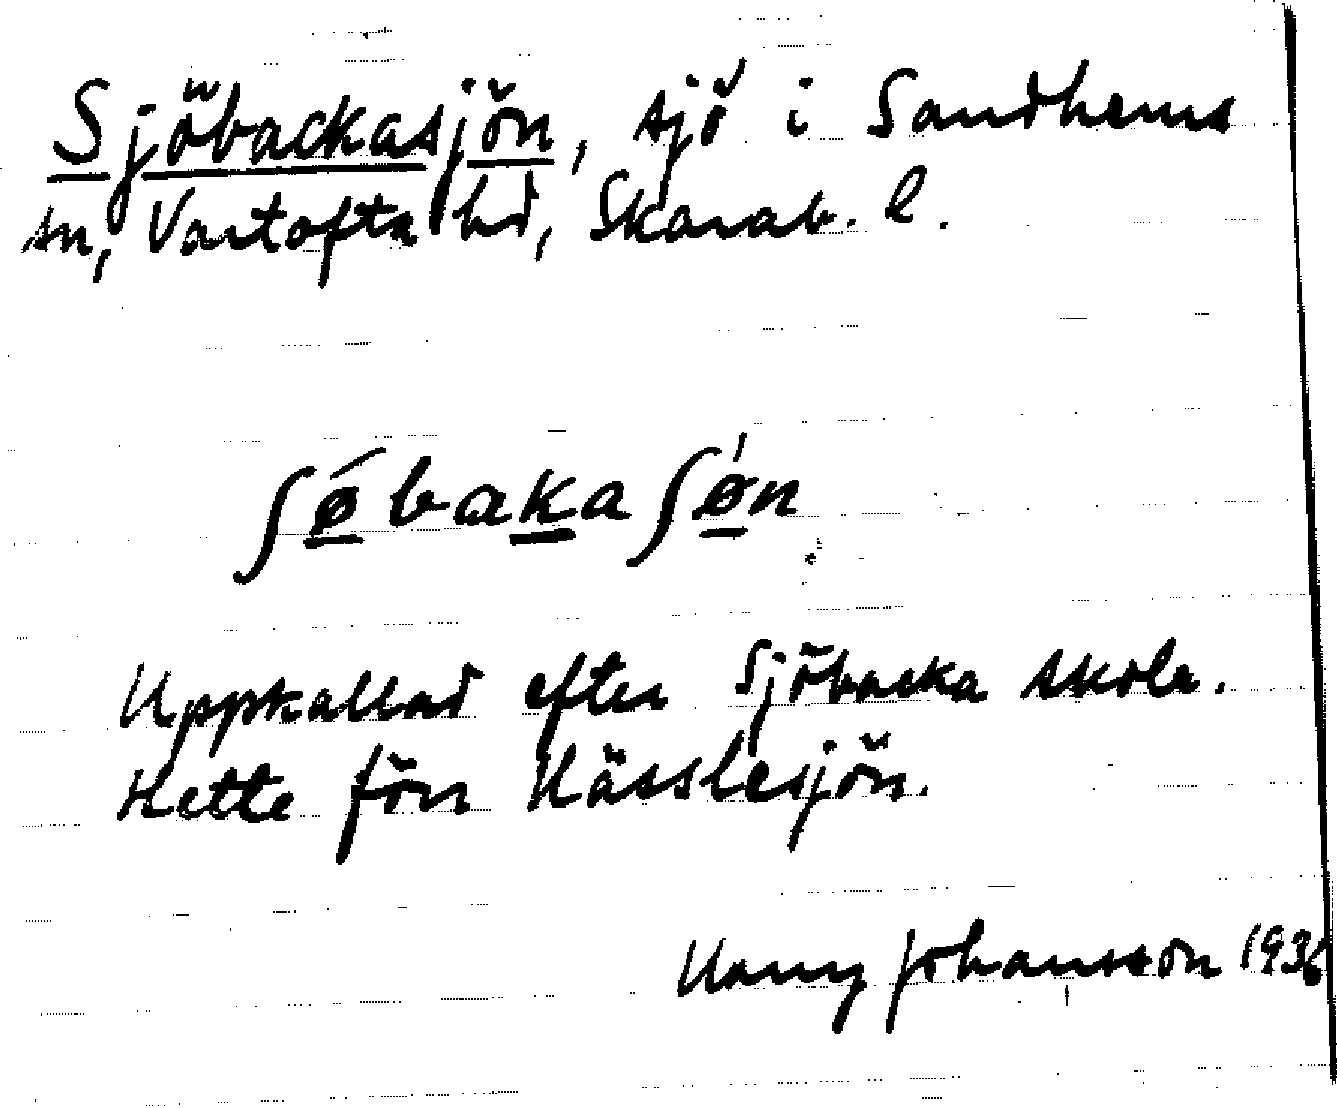 Sjöbackasjön, sjö i Sandhems
sn, Vartofta hd, Skarab. l.
ʃǿbakaʃǿn
Uppkallad efter Sjöbacka skola.
Hette förr Hässlesjön.
Harry Johansson 1936